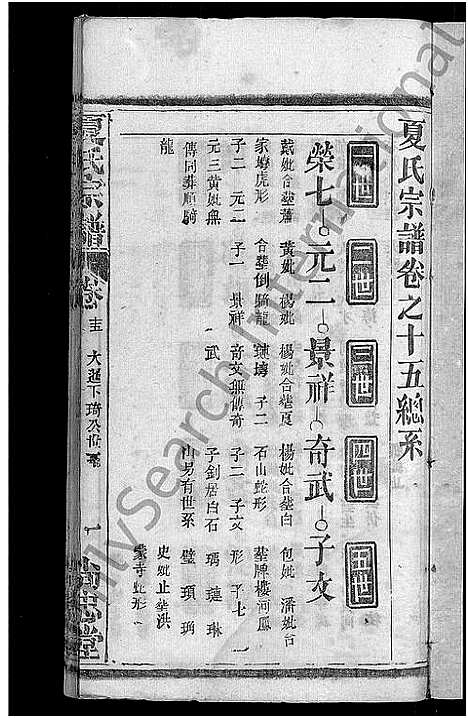 夏氏宗譜卷之十五總系
一世 二世 三世 四世 五世
榮七 元二 景祥 奇武 子文
戴妣合塟蕭 黃妣 楊妣 楊妣合塟夏 楊妣合塟白 包妣 潘妣合
家塝虎形 合塟倒騎龍 塝 子二 石山蛇形 塟牌樓河鳳
子二 元二 子一 景祥 奇文無傳奇 子二 子文 形 子七
元三黃妣無 武 子釗居白石 瑀 璉 琳
傳同葬順騎 山另有世系 璧 頊 珦
龍 史妣止塟洪
家寺蛇形
夏氏宗譜
卷十五
大進下琦公世系
一
堂
MySearch International